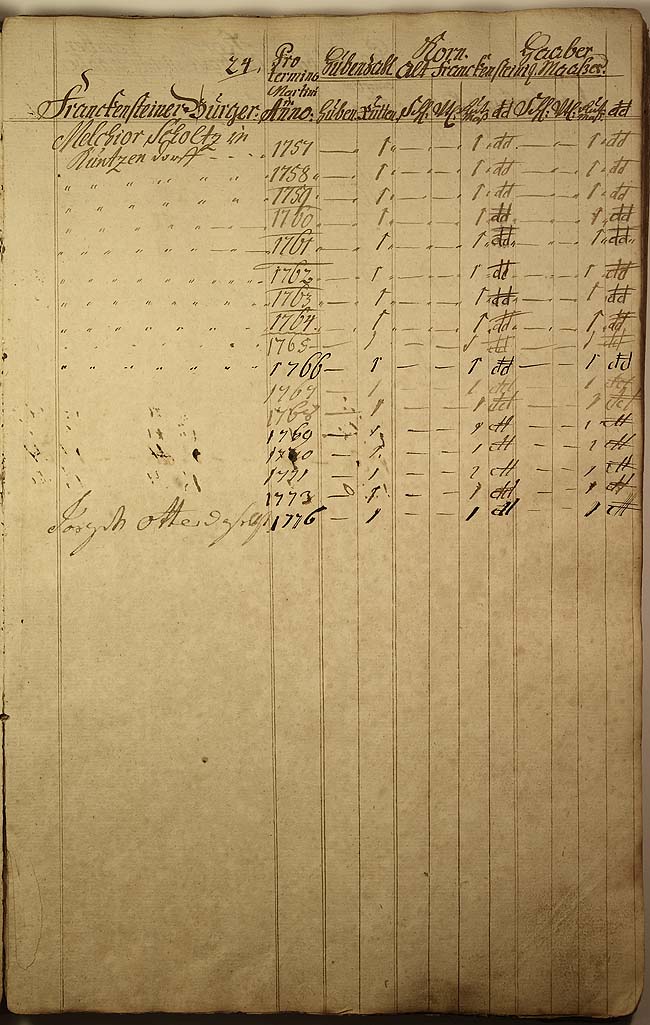 24. Pro Hubenzahl. Korn. Haaber
termino Alt Franckensteinl. Maaßes.
Martini
Franckensteiner Bürger. in Anno. Huben. Rutten. Schl. Vtl. dd Schl. Vtl. dd
Melchior Scholtz in
Kuntzendorff - - - - 1757 — 1 — — 1 dd — — 1 dd
" " " " " " " 1758 — 1 — — 1 dd — — 1 dd
" " " " " " " 1759 — 1 — — 1 dd — — 1 dd
1760 — 1 — — 1 dd — — 1 dd
" " " " " " 1761 — 1 — — 1 dd — — 1 dd
" " " " " " " 1762 — 1 — — 1 dd — — 1 dd
" " " " " " " 1763 — 1 — — 1 dd — — 1 dd
" " " " " " " 1764 — 1 — — 1 dd — — 1 dd
" " " " " " " 1765 — 1 — — 1 dd — — 1 dd
" " " " " " " 1766 — 1 — — 1 dd — — 1 dd
1767 — 1 — — 1 dd — — 1 dd
" " " 1768 — 1 — — 1 dd — — 1 dd
" " " 1769 — 1 — — 1 dd — — 1 dd
" " " 1770 — 1 — — 1 dd — — 1 dd
" " " 1771 — 1 — — 1 dd — — 1 dd
1773 — 1 — — 1 dd — — 1 dd
Joseph 1776 — 1 — — 1 dd — — 1 dd